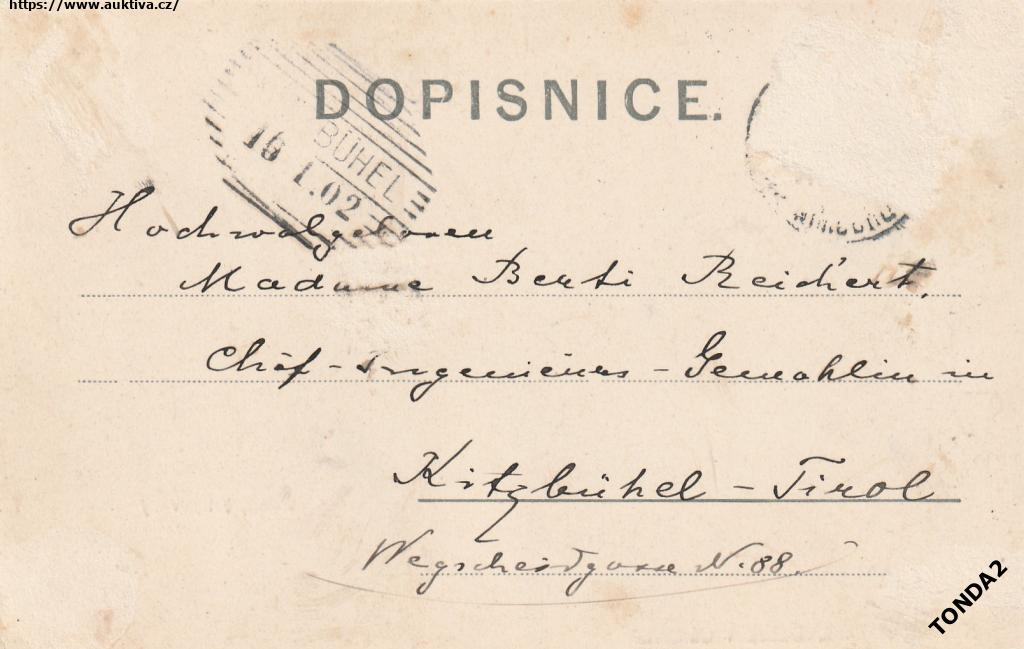 https://www.auktiva.cz/
DOPISNICE.
BÜHEL
10 1.02
Hochwolgeboren
Madame Berti Reichert,
Chéf-Ingenieurs-Gemahlin in
Kitzbühel-Tirol
Wegscheidgasse N. 88.
TONDA2